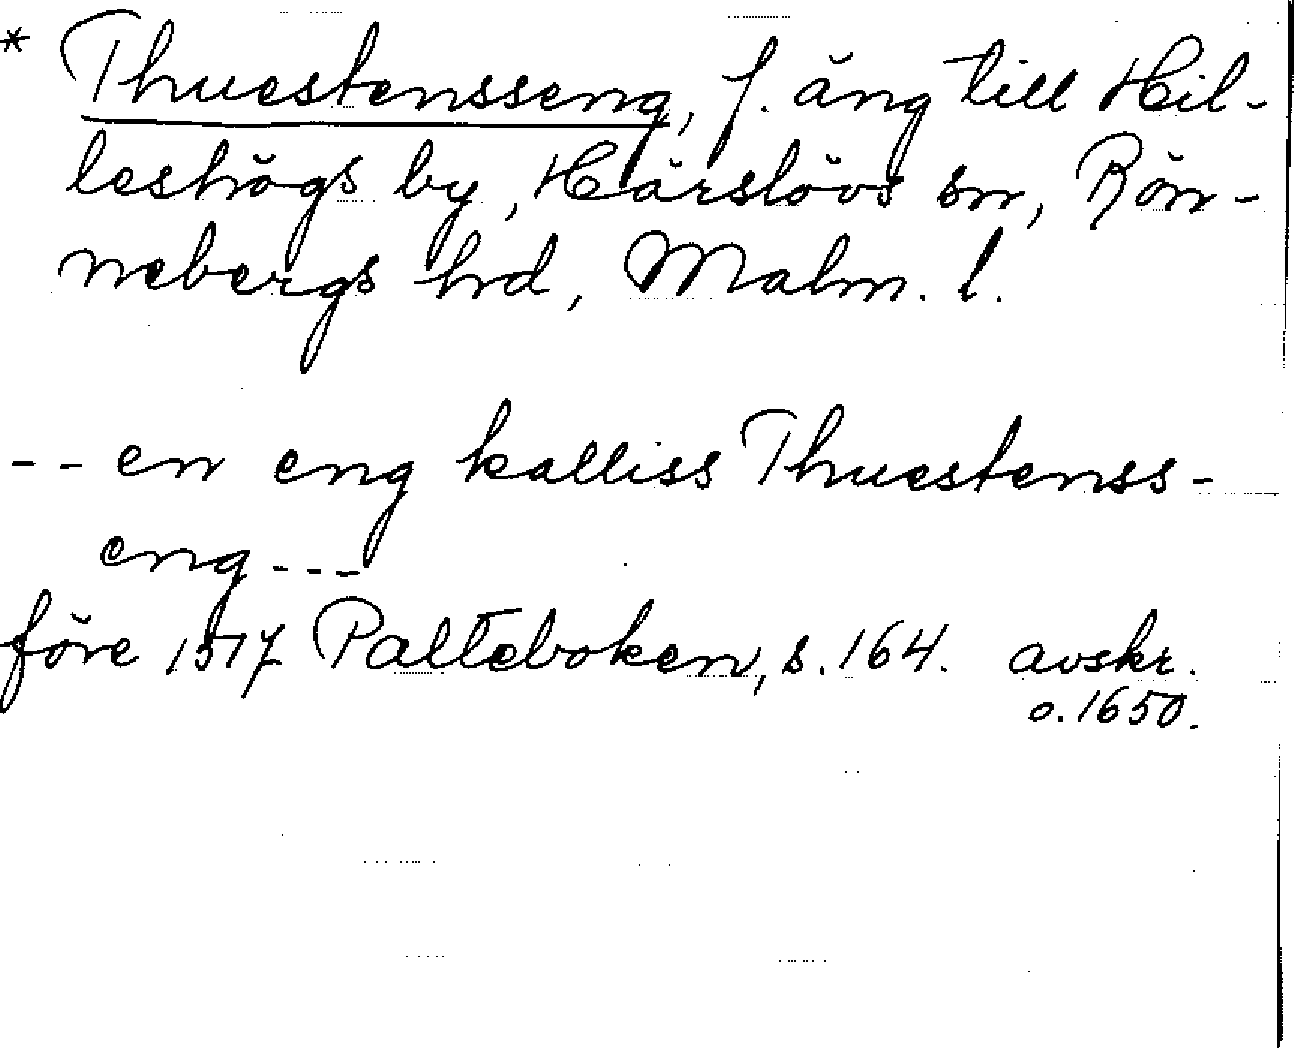 * Thuestensseng, f. äng till Hil-
leshögs by, Härslövs sn, Rön-
nebergs hrd, Malm. l.
-- en eng kalliss Thuestenss-
eng ---
före 1517 Palteboken, s. 164. avskr.
o. 1650.